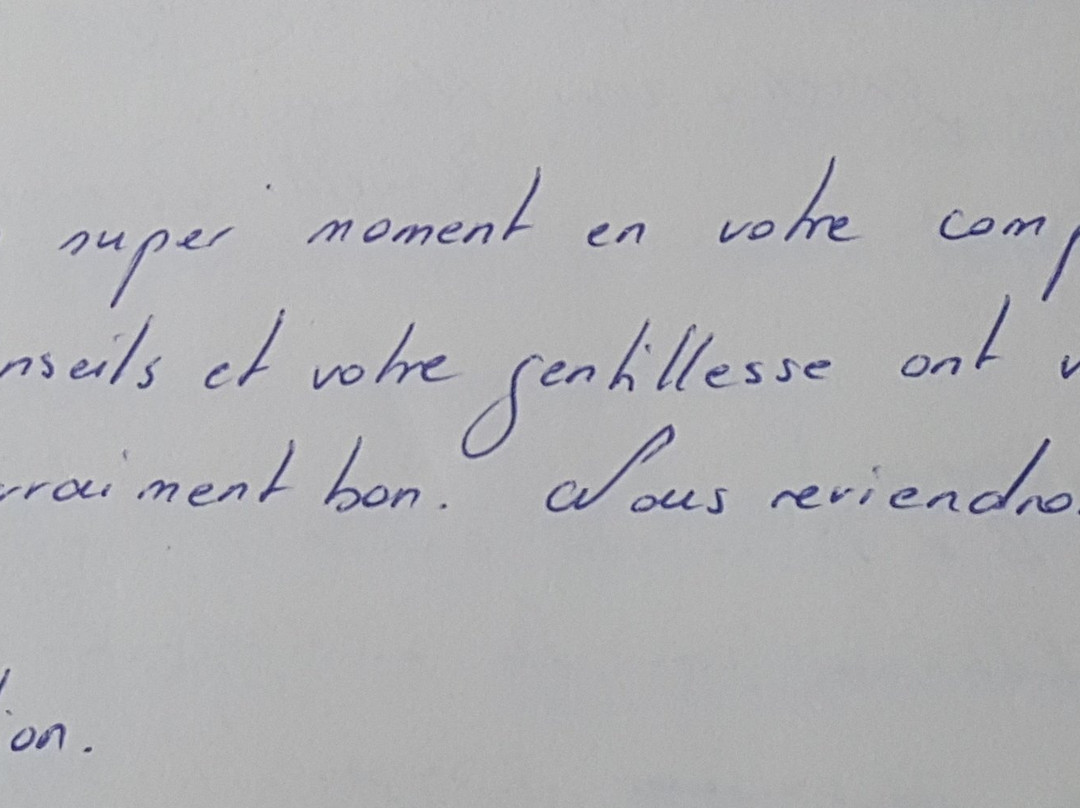 super moment en votre comp
nseils et votre gentillesse ont v
vraiment bon. Nous reviendro
ion.